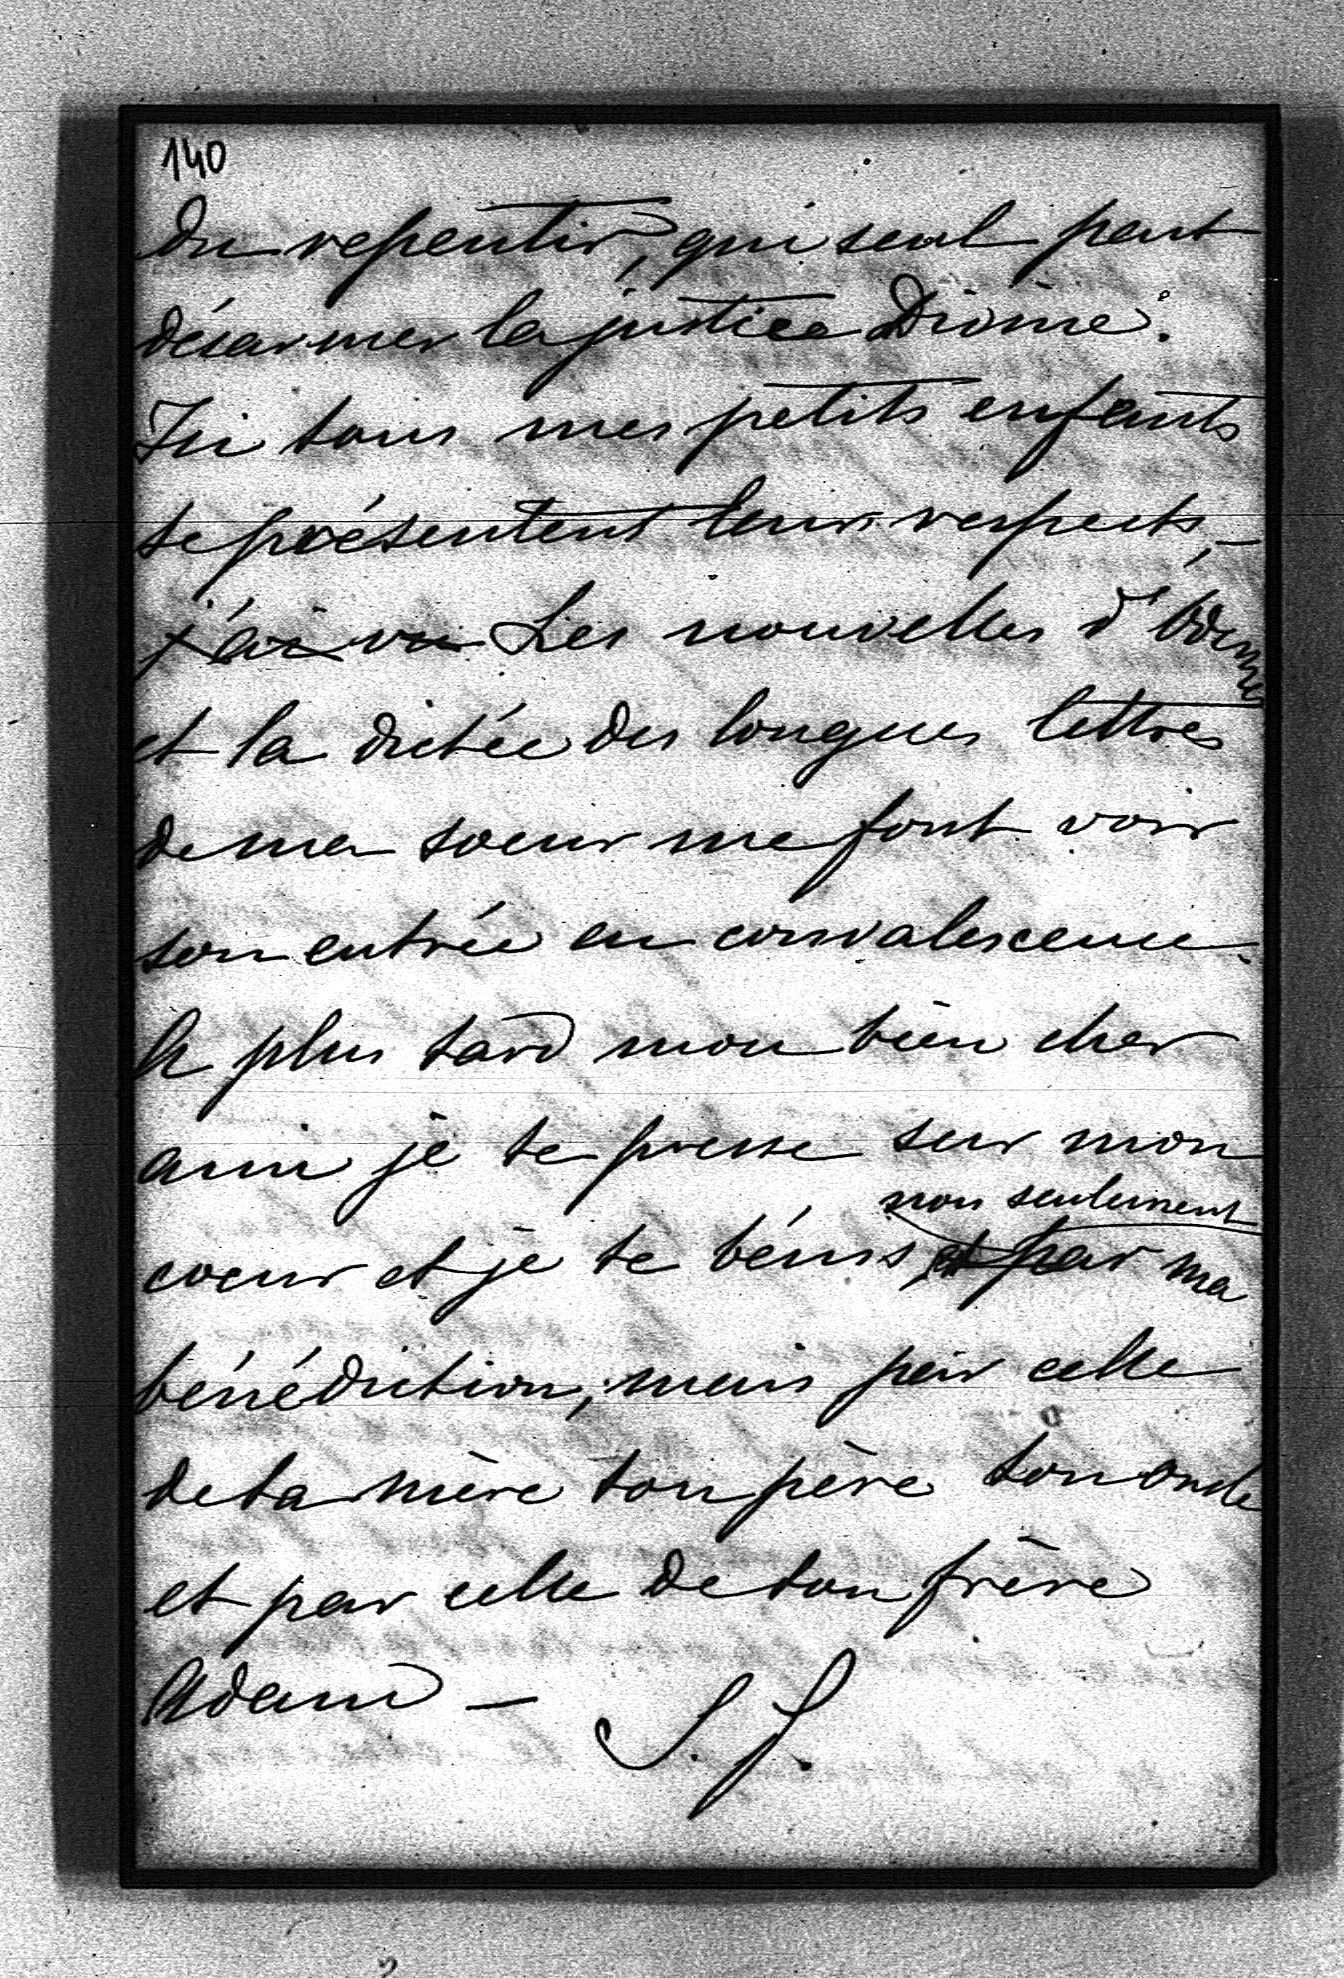 140
du repentir, qui seul peut
désarmer la justice Divine.
Ici tous mes petits enfants
te présentent leurs respects, –
j'ai vu Les nouvelles d'
et la dictée des longues lettres
de ma soeur me font voir
son entrée en convalescence.
A plus tard mon bien cher
ami je te presse sur mon
non seulement
coeur et je te bénis, et par ma
bénédiction, mais par celle
de ta mère ton père ton oncle
et par celle de ton frère
Adam –